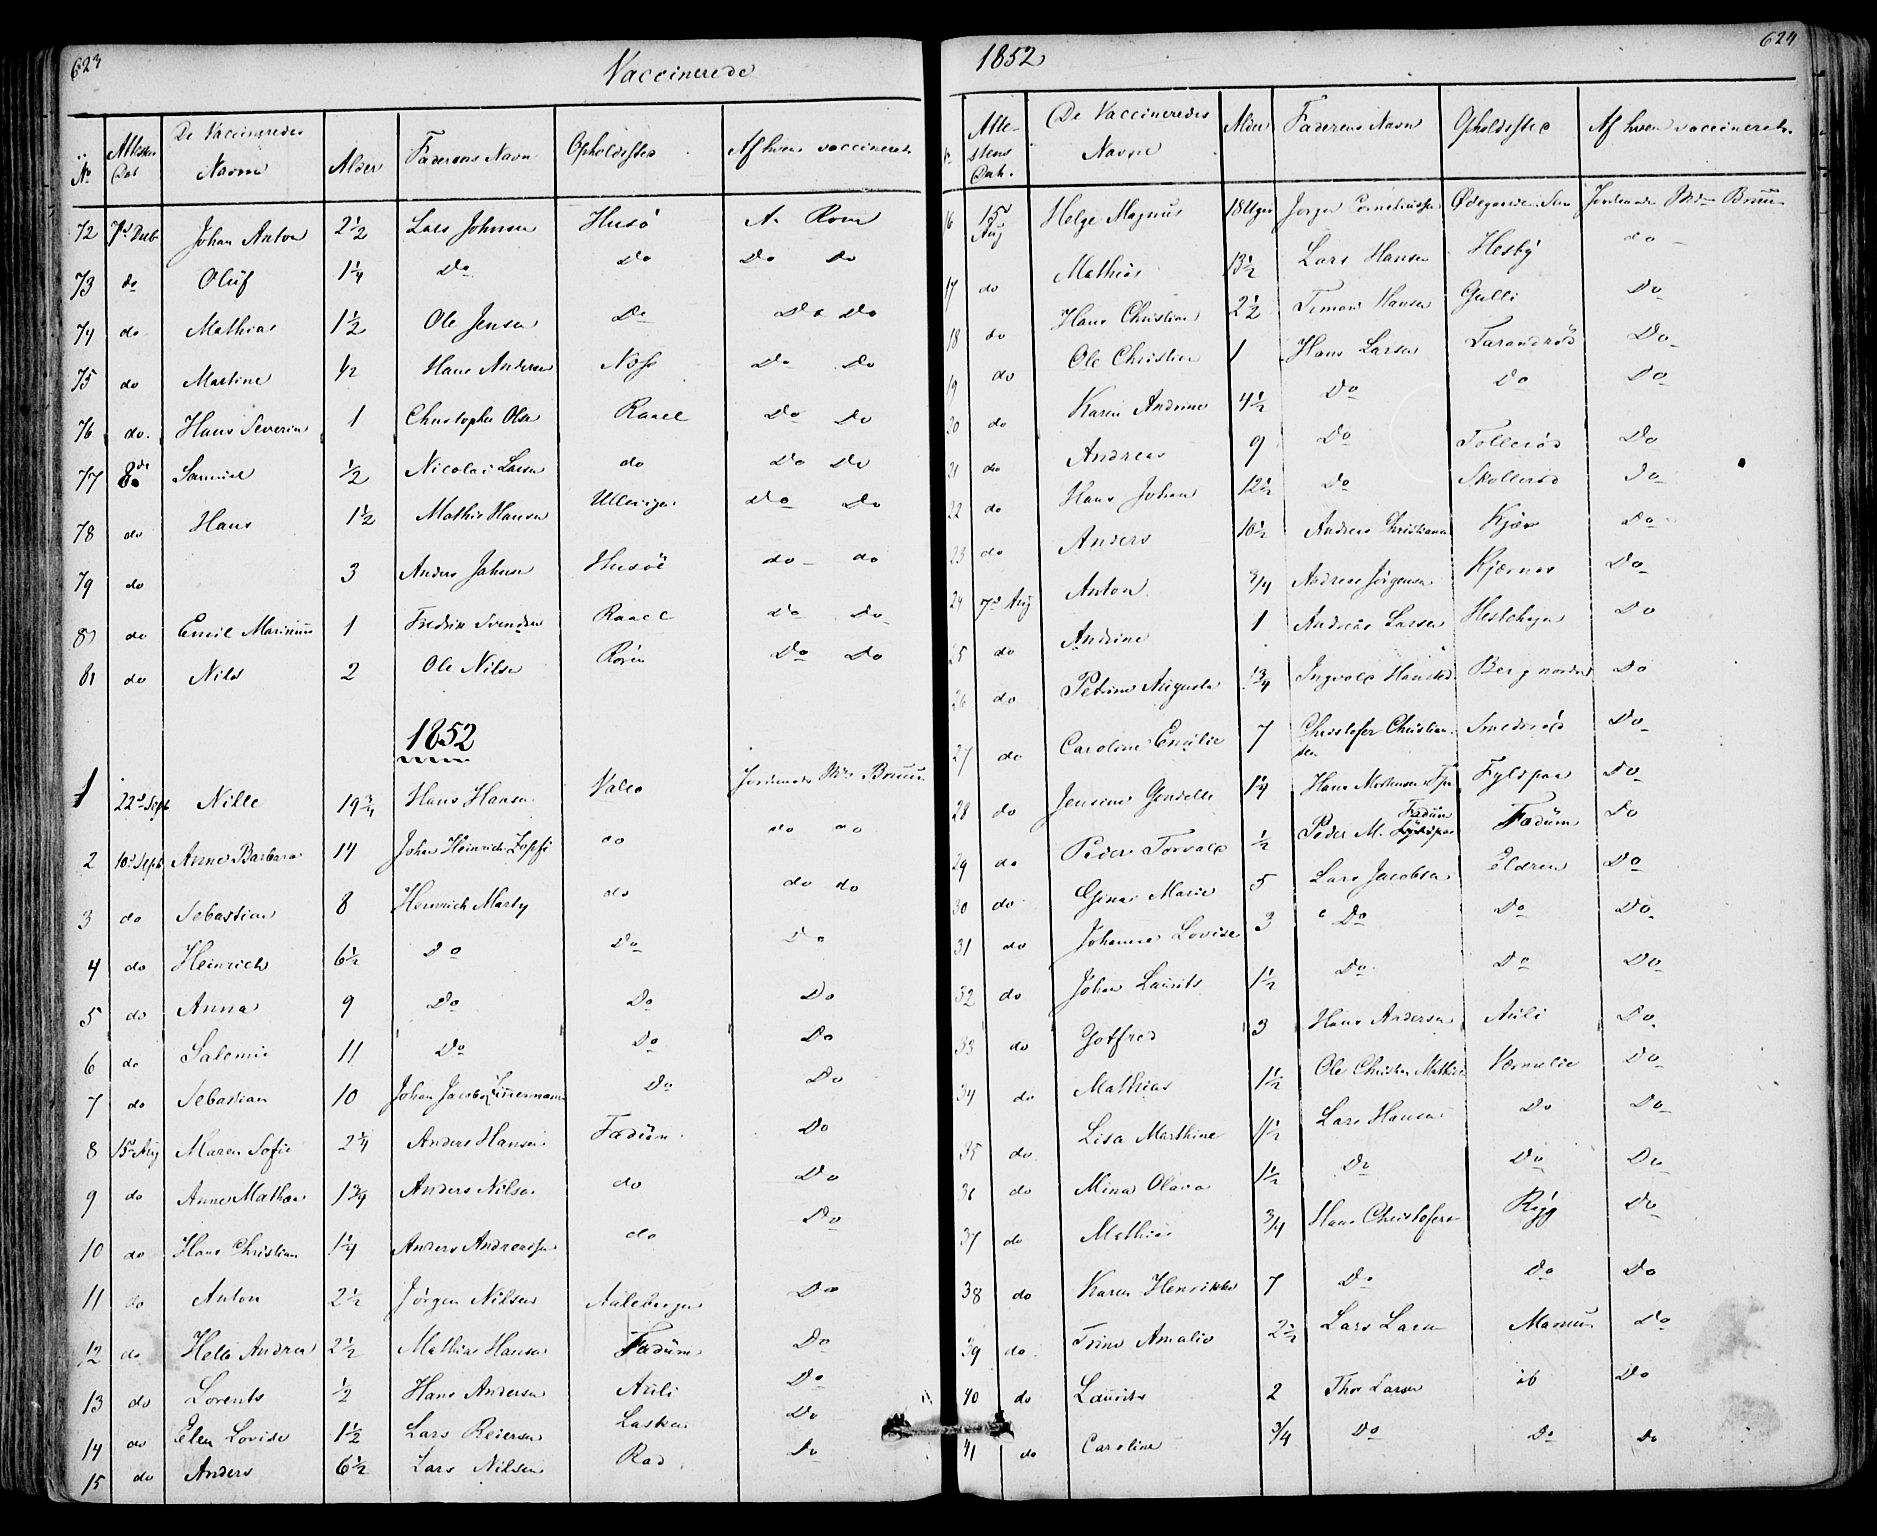 623
Vaccinerede
No Attestens Dat De Vaccineredes Navne Alder Faderens Navn Opholdssted Af hvem vaccineret
72 7d Dcb Johan Anton 2 1/2 Lars Johnsen Husö A. Rove
73 do Oluf 1 1/4 Do Do Do Do
74 do Mathias 1 1/2 Ole Jensen Do Do Do
75 do Martine 1/2 Hans Andersen Do Do
76 do. Hans Severin 1 Christopher Olsen Raael Do Do
77 8de Samuel 1/2 Nicolai Larsen do Do Do
78 do Hans 1 1/2 Mathis Hansen Do Do
79 do 3 Anders Johnsen Husöe do do
80 do Emil Marinius 1 Fredrik Svendsen Raael Do Do
81 do Nils 2 Ole Nilsen Do Do
1852
1 22d Sept Nille 19 3/4 Hans Hansen Valle Jordemoder Md. Bruun
2 10d Sept Anne Barbara 14 Johan Heinrich do do do
3 do Sebastian 8 Heinrich Marty do do do
4 do Heinrich 6 1/2 Do Do Do
5 do Anna 9 Do Do Do
6 do Salomie 11 Do Do Do
7 do Sebastian 10 Johan Jacob Zimmermann Do Do
8 15d Aug Maren Sofie 2 1/4 Anders Hansen Fadüm Do
9 do Anne Mathea 1 3/4 Anders Nilsen do Do
10 do Hans Christian 1 1/4 Anders Andreassen do Do
11 do Anton 2 1/2 Jörgen Nilsen Do
12 do Helle Andrea 2 1/2 Mathias Hansen Fadüm Do
13 do Lorents 1/2 Hans Andersen Auli Do
14 do Elen Lovise 1 1/2 Lars Reiersen Lasken Do
15 do Anders 6 1/2 Lars Nilsen Rad Do
1852
624
No Attestens Dat. De Vaccineredes Navne Alder Faderens Navn Opholdssted Af hvem vaccineret.
16 15d Aug Helge Magnus 18 Uger Jörgen Corneliussen Ødegaarden Jordemoder Md. Bruun
17 do Mathias 13 1/2 Lars Hansen Hesby do
18 do Hans Christian 2 1/2 Simon Hansen Gulli Do
19 do Ole Christian 1 Hans Larsen Do
20 do Karen Andrine 4 1/2 Do Do Do
21 do Andreas 9 Do Tolleröd Do
22 do Hans Johan 12 1/2 Do Skolleröd Do
23 do Anders 10 1/2 Andreas Christiansen Kjær Do
24 7d Aug Anton 3/4 Andreas Jörgensen Kjærnes Do
25 do Andrine 1 Andreas Larsen Do
26 do Petrine Augusta 1 3/4 Ingvald Berg nordre Do
27 do Caroline Emilie 7 Christofer Christiansen Smedsröd Do
28 do Jensine 1 1/4 Hans Mortensen Fyldpaa Do
29 do Peder Torvald 1/2 Peder M. Fadüm Fadüm Do
30 do Gina Marie 5 Lars Jacobsen Eldren Do
31 do Johanne Lovise 3 Do Do Do
32 do Johan Laurits 1 1/2 Do Do Do
33 do Gotfred 3 Hans Andersen Auli Do
34 do Mathias 1 1/2 Ole Christian Mathis Værnelie Do
35 do Lisa Marthine 1 1/2 Lars Hansen Do Do
36 do Mina Olava 1 1/2 Do Do Do
37 do Mathias 3/4 Hans Christofersen Rygg Do
38 do Karen Henrikke 7 Do Do Do
39 do Trine Amalie 2 1/2 Lars Larsen Do
40 do Laurits 2 Thor Larsen ib Do
41 do Caroline 3/4 Do Do Do